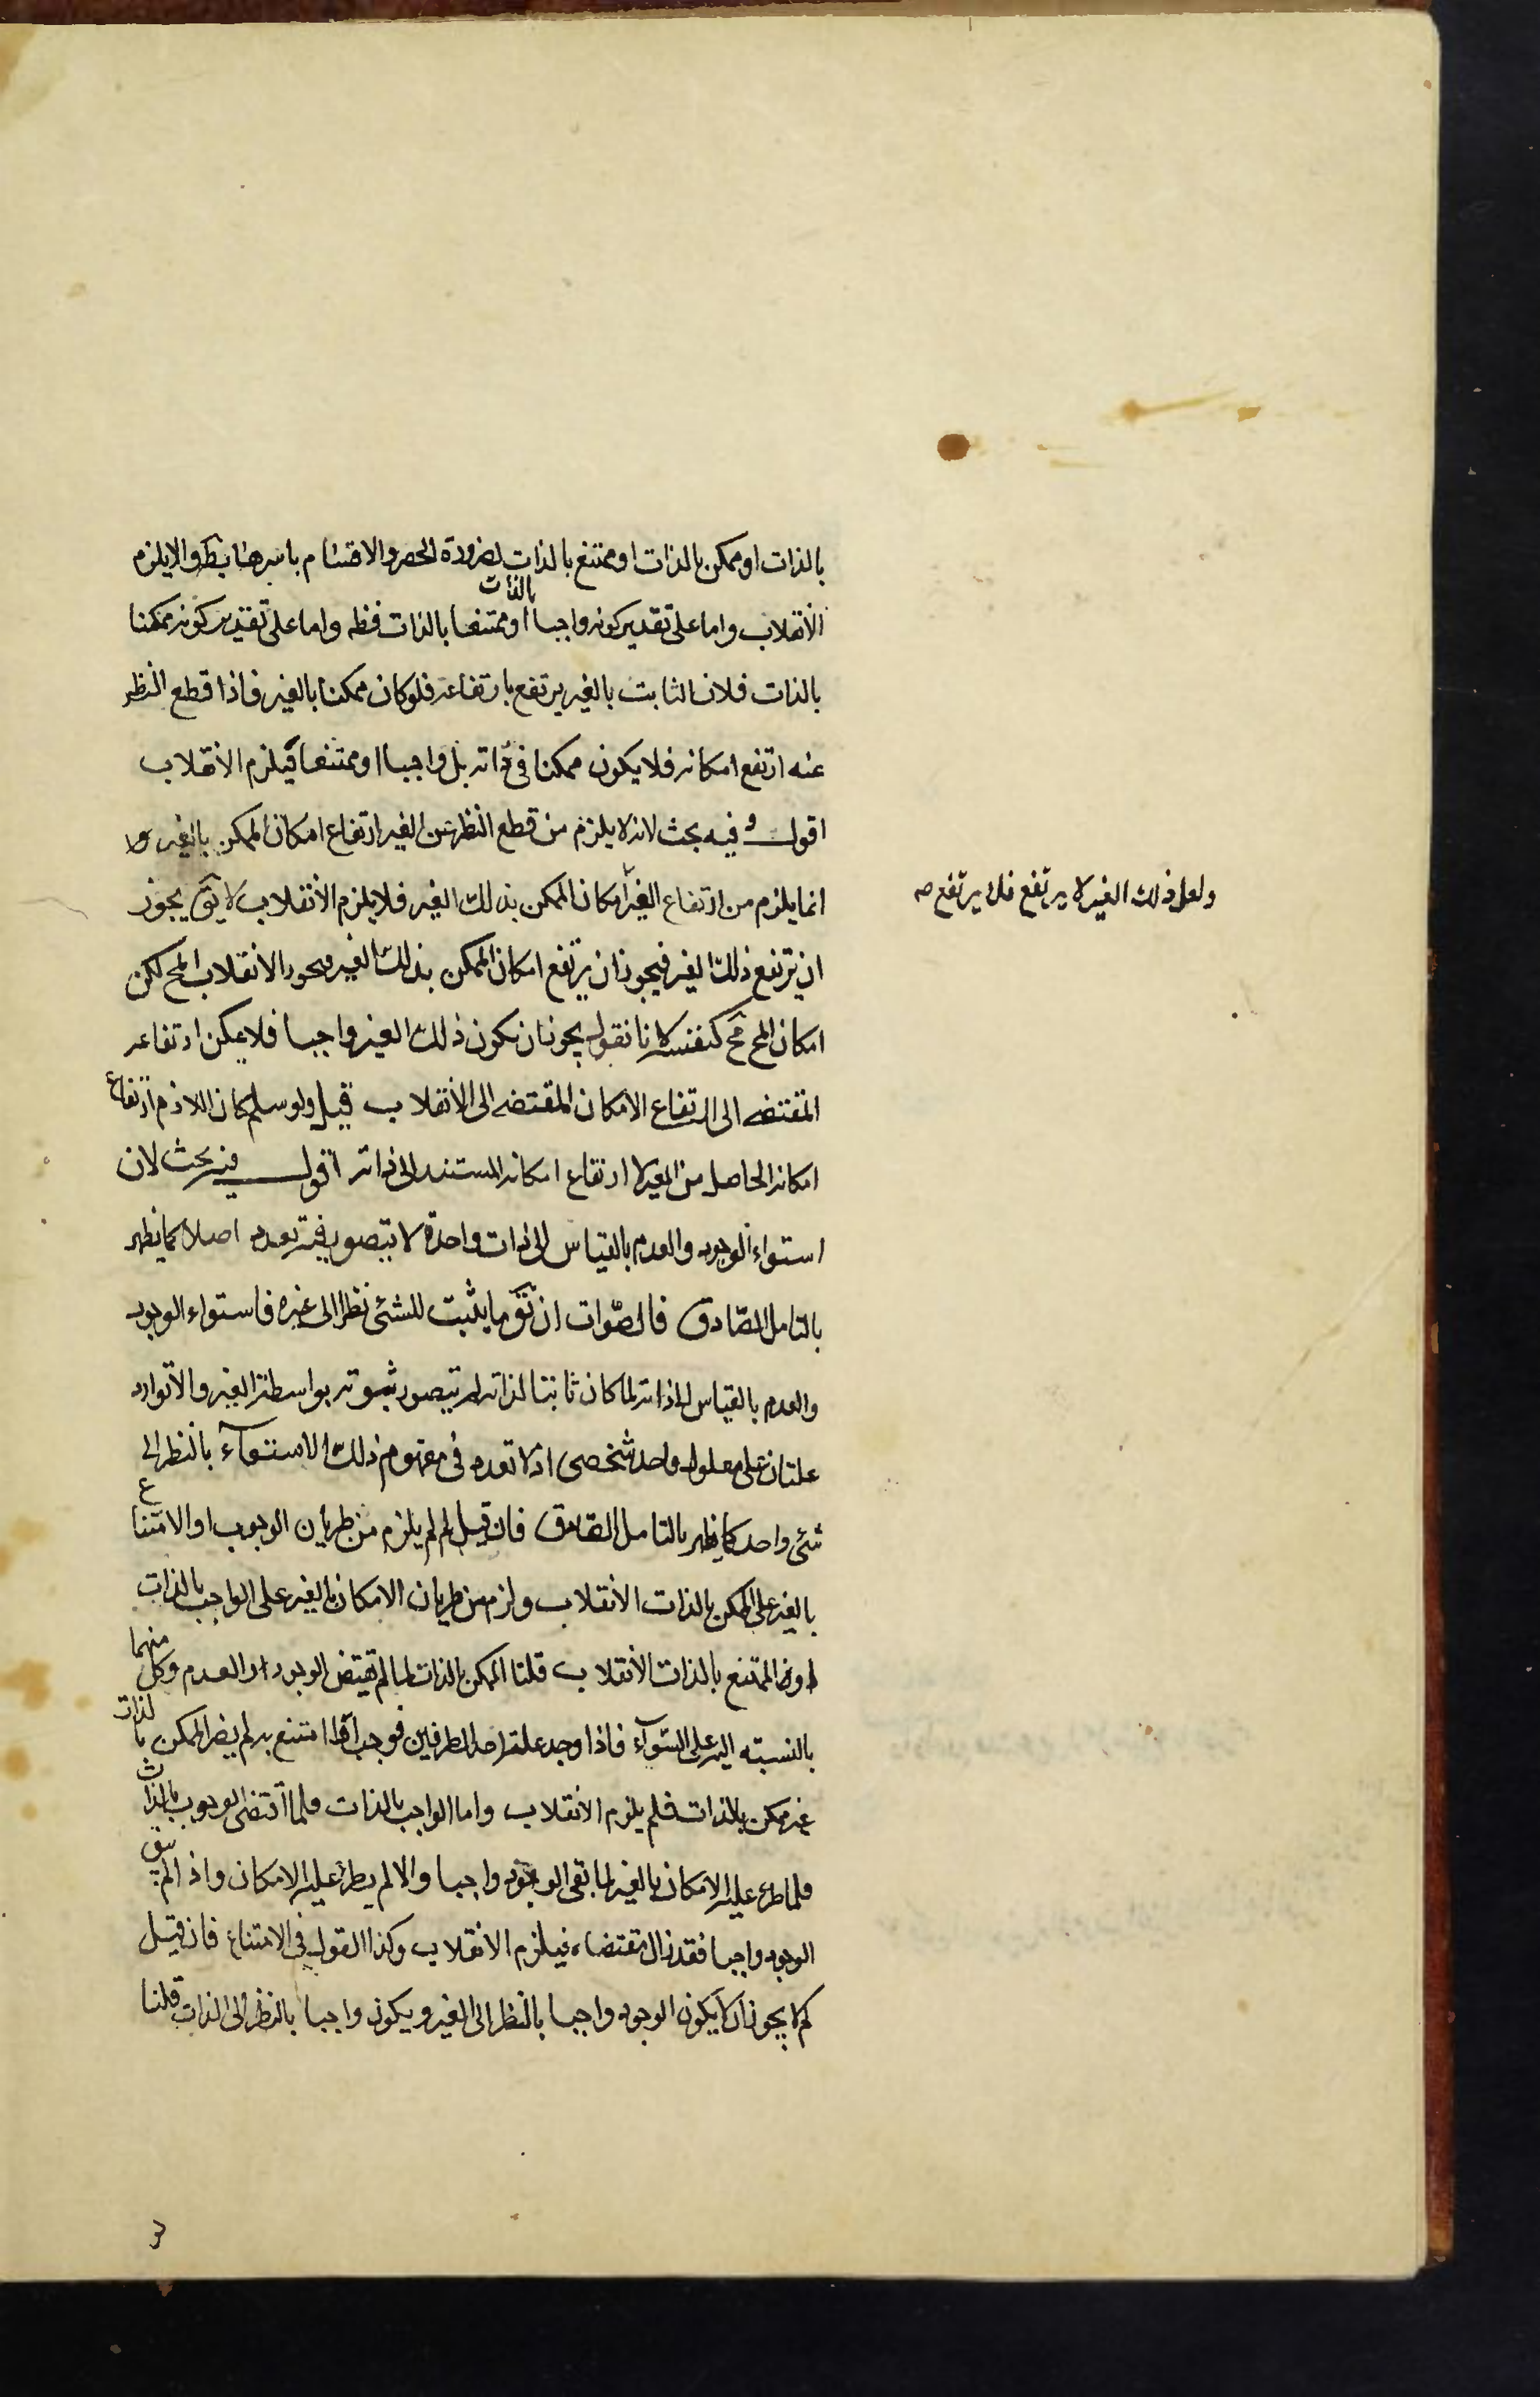 بالذات او ممكن بالذات او ممتنع بالذات لضرورة الحصر والاقسام باسرها بط والا يلزم
الانقلاب واما على تقدير كونه واجبا بالذات او ممتنعا بالذات فظه واما على تقدير كونه ممكنا
بالذات فلان الثابت بالغير يرتفع بارتفاعه فلو كان ممكنا بالغير فاذا قطع النظر
عنه ارتفع امكانه فلا يكون ممكنا فى ذاته بل واجبا او ممتنعا فيلزم الانقلاب
اقول وفيه بحث لانه لا يلزم من قطع النظر عن الغير ارتفاع امكان الممكن بالغير
انما يلزم من ارتفاع الغير امكان الممكن بذلك الغير فلا يلزم الانقلاب لا يق يجوز
ولعل ذلك الغير لا يرتفع فلا يرتفع صه
ان يرتفع ذلك الغير فيجوز ان يرتفع امكان الممكن بذلك الغير فيجوز الانقلاب المح لكن
امكان المح مح كنفسه لانا نقول يجوز ان يكون ذلك الغير واجبا فلا يمكن ارتفاعه
المقتضى الى ارتفاع الامكان المقتضى الى الانقلاب قيل ولو سلم كان اللازم ارتفاع
امكانه الحاصل من الغير لا ارتفاع امكانه المستند الى ذاته اقول فيه بحث لان
استواء الوجود والعدم بالقياس الى ذات واحدة لا يتصور فيه تعدد اصلا كما يظهر
بالتامل الصادق فالصواب ان يق ما يثبت للشئ نظرا الى غيره فاستواء الوجود
والعدم بالقياس الى ذاته لما كان ثابتا لذاته لم يتصور ثبوته بواسطة الغير والا توارد
علتان على معلول واحد شخصى اذ لا تعدد فى مفهوم ذلك الاستواء بالنظر الى
شئ واحد كما يظهر بالتامل الصادق فان قيل لم لم يلزم من طريان الوجوب او الامتناع
بالغير على الممكن بالذات الانقلاب ولزم من طريان الامكان بالغير على الواجب بالذات
او الممتنع بالذات الانقلاب قلنا الممكن بالذات لما لم يقتض الوجود او العدم وكل منهما
بالنسبة اليه على السواء فاذا وجد علة احد الطرفين فوجب او امتنع به لم يصر الممكن بالذات
غير ممكن بالذات فلم يلزم الانقلاب واما الواجب بالذات فلما اقتضى الوجوب بالذات
فلما طرء عليه الامكان بالغير لما بقى الوجود واجبا والا لم يطرء عليه الامكان واذا لم يبق
الوجود واجبا فقد زال مقتضاه فيلزم الانقلاب وكذا القول فى الامتناع فان قيل
لم لا يجوز ان لا يكون الوجود واجبا بالنظر الى الغير ويكون واجبا بالنظر الى الذات قلنا
3